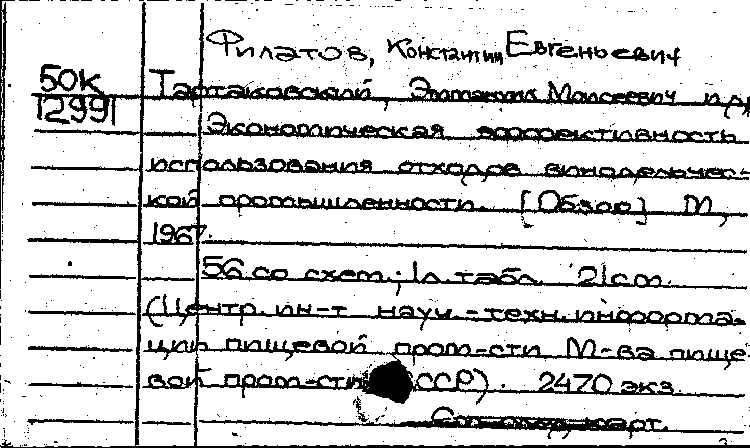 Филатов, Константин Евгеньевич
50К
1299
Тартаковский, Эммануил Моисеевич и др
Экономическая эффективность
использования отходов винодельчес-
кой промышленности. [Обзор] М,
1967.
56 со схем.; 1 л. табл. 21 cm.
(Центр. ин-т науч.-техн. информа-
ции пищевой пром-сти М-ва пище
вой пром-сти СССР). 2470 экз.
карт.